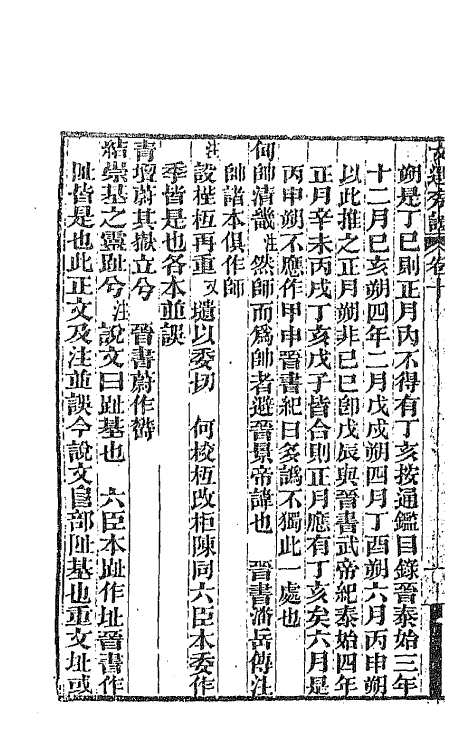 文選考證卷十
朔是丁巳則正月內不得有丁亥按通鑑目錄晉泰始三年
十二月己亥朔四年二月戊戌朔四月丁酉朔六月丙申朔
以此推之正月朔非己巳卽戊辰與晉書武帝紀泰始四年
正月辛未丙戌丁亥戊子皆合則正月應有丁亥矣六月是
丙申朔不應作甲申晉書紀日多譌不獨此一處也
何師清哉注然師而爲帥者避晉景帝諱也 晉書潘岳傳注
師諸本俱作帥
注設梐枑再重又壝以委切 何校枑改柜陳同六臣本委作
季皆是也各本並誤
靑壇蔚其嶽立兮 晉書蔚作鬱
結崇基之靈趾兮注說文曰趾基也 六臣本趾作址晉書作
阯皆是也此正文及注並誤今說文𨸏部阯基也重文址或